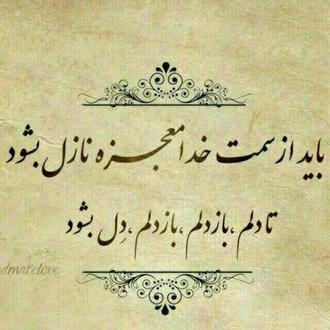 باید از سمت خدا معجزه نازل بشود
تا دلم ،باز دلم ،باز دلم، دِل بشود
dmakelove